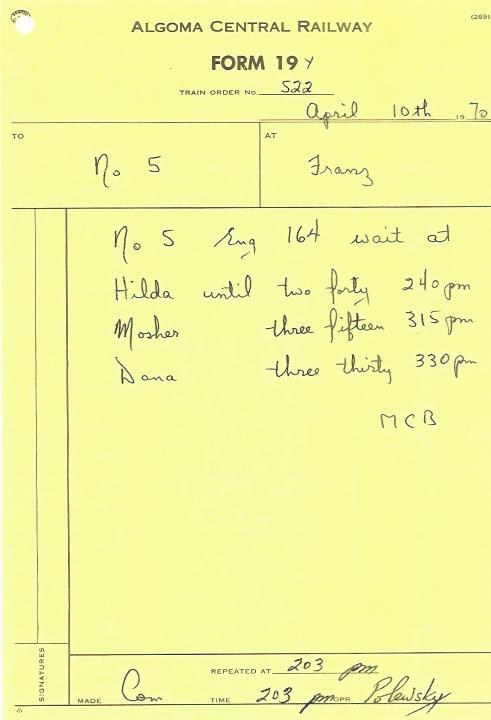 (269)
ALGOMA CENTRAL RAILWAY
FORM 19 Y
TRAIN ORDER No. 522
April 10th 1970
TO
No 5
AT
Franz
No 5 Eng 164 wait at
Hilda until two forty 240 pm
Mosher three fifteen 315 pm
Dana three thirty 330 pm
MCB
SIGNATURES
REPEATED AT 203 pm
MADE Com TIME 203 pm OPR. Polewsky